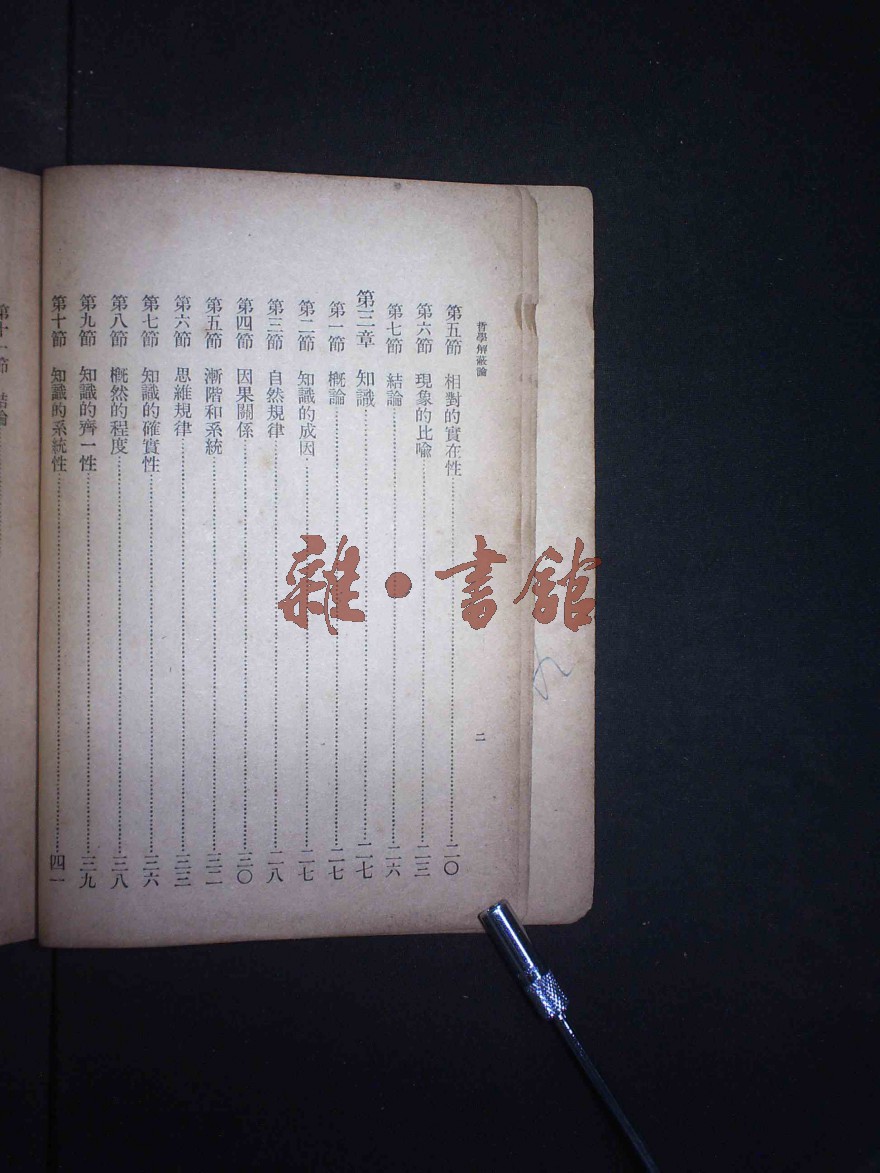 哲學解蔽論
二
第五節 相對的實在性……二〇
第六節 現象的比喩……二三
第七節 結論……二六
第三章 知識……二七
第一節 概論……二七
第二節 知識的成因……二七
第三節 自然規律……二八
第四節 因果關係……三〇
第五節 漸階和系統……三二
第六節 思維規律……三三
第七節 知識的確實性……三六
第八節 概然的程度……三八
第九節 知識的齊一性……三九
第十節 知識的系統性……四一
第十一節 結論
雜·書館